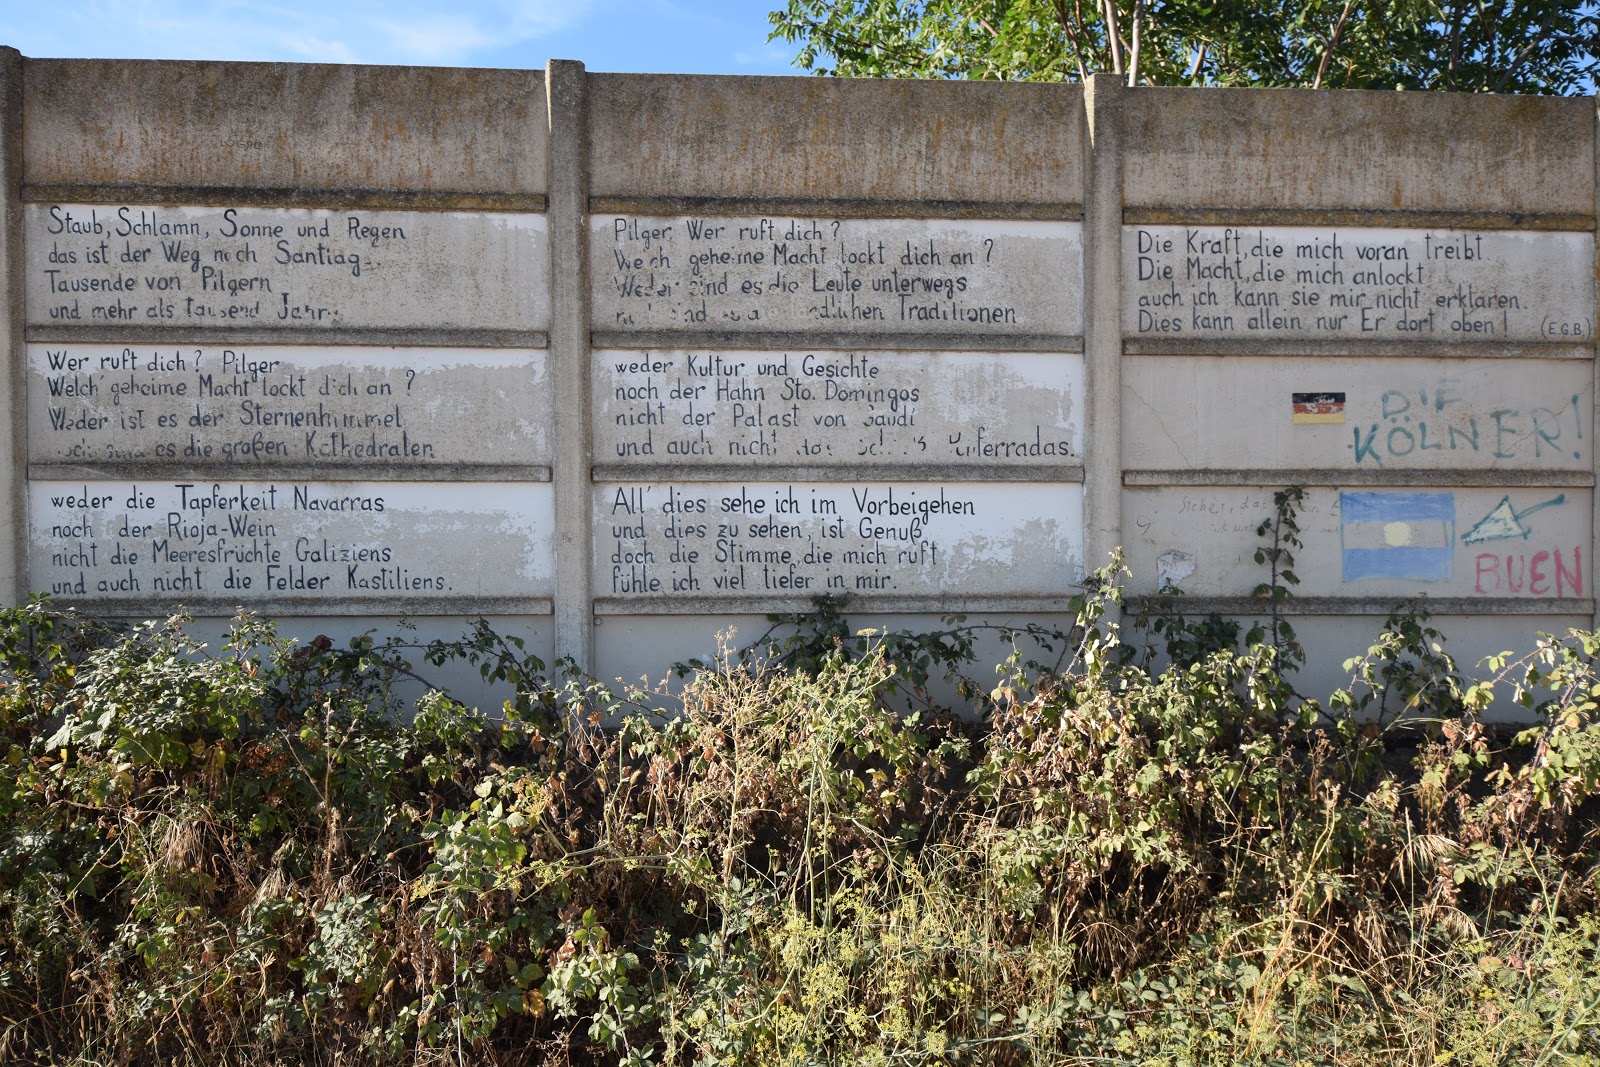 Staub, Schlamn, Sonne und Regen
das ist der Weg nach Santiag
Tausende von Pilgern
und mehr als tausend Jahr
Wer ruft dich? Pilger
Welch' geheime Macht lockt dich an?
Weder ist es der Sternenhimmel
es die großen Kathedralen
weder die Tapferkeit Navarras
noch der Rioja-Wein
nicht die Meeresfrüchte Galiziens
und auch nicht die Felder Kastiliens.
Pilger, Wer ruft dich?
Welch geheime Macht lockt dich an?
Weder sind es die Leute unterwegs
ländlichen Traditionen
weder Kultur und Gesichte
noch der Hahn Sto. Domingos
nicht der Palast von Gaudí
und auch nicht das Ponferradas.
All' dies sehe ich im Vorbeigehen
und dies zu sehen, ist Genuß,
doch die Stimme, die mich ruft
fühle ich viel tiefer in mir.
Die Kraft, die mich voran treibt.
Die Macht, die mich anlockt
auch ich kann sie mir nicht erklären.
Dies kann allein nur Er dort oben! (E.G.B.)
DIE
KÖLNER!
BUEN